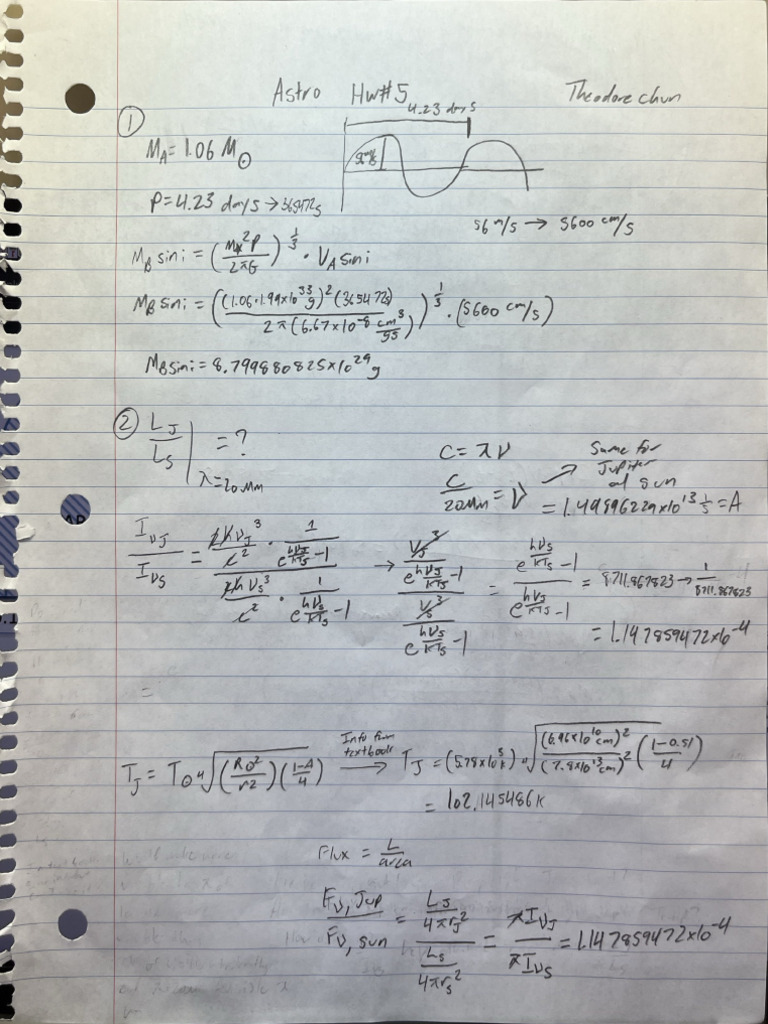 Astro Hw#5 Theodore chun
① 4.23 days
M_A = 1.06 M_⊙ 56m/s
P=4.23 days → 365472s 56 m/s → 5600 cm/s
M_B sini = (M_A²P / 2πG)^(1/3) · V_A sini
M_B sini = ((1.06·1.99x10³³g)² (365472s) / 2π(6.67x10⁻⁸ cm³/gs²))^(1/3) · (5600 cm/s)
M_B sini = 8.799880825x10²⁹g
② L_J/L_S | λ=20μm = ? C = λν
C/20μm = ν → Same for Jupiter and sun
= 1.49896229x10¹³ 1/s = A
I_νJ/I_νS = (2hν_J³/c² · 1/(e^(hν_J/kT_J)-1)) / (2hν_S³/c² · 1/(e^(hν_S/kT_S)-1)) → (ν_J³/(e^(hν_J/kT_J)-1)) / (ν_S³/(e^(hν_S/kT_S)-1)) = (e^(hν_S/kT_S)-1)/(e^(hν_J/kT_J)-1) = 8711.867823 → 1/8711.867823
= 1.147859472x10⁻⁴
=
T_J = T_⊙ ⁴√((R_⊙²/r²)((1-A)/4)) Info from textbook → T_J = (5.78x10³K) ⁴√((6.96x10¹⁰cm)²/(7.8x10¹³cm)² ((1-0.51)/4))
= 102.145486K
Flux = L/area
F_ν,Jup/F_ν,sun = (L_J/4πr_J²)/(L_S/4πr_S²) = πI_νJ/πI_νS = 1.147859472x10⁻⁴